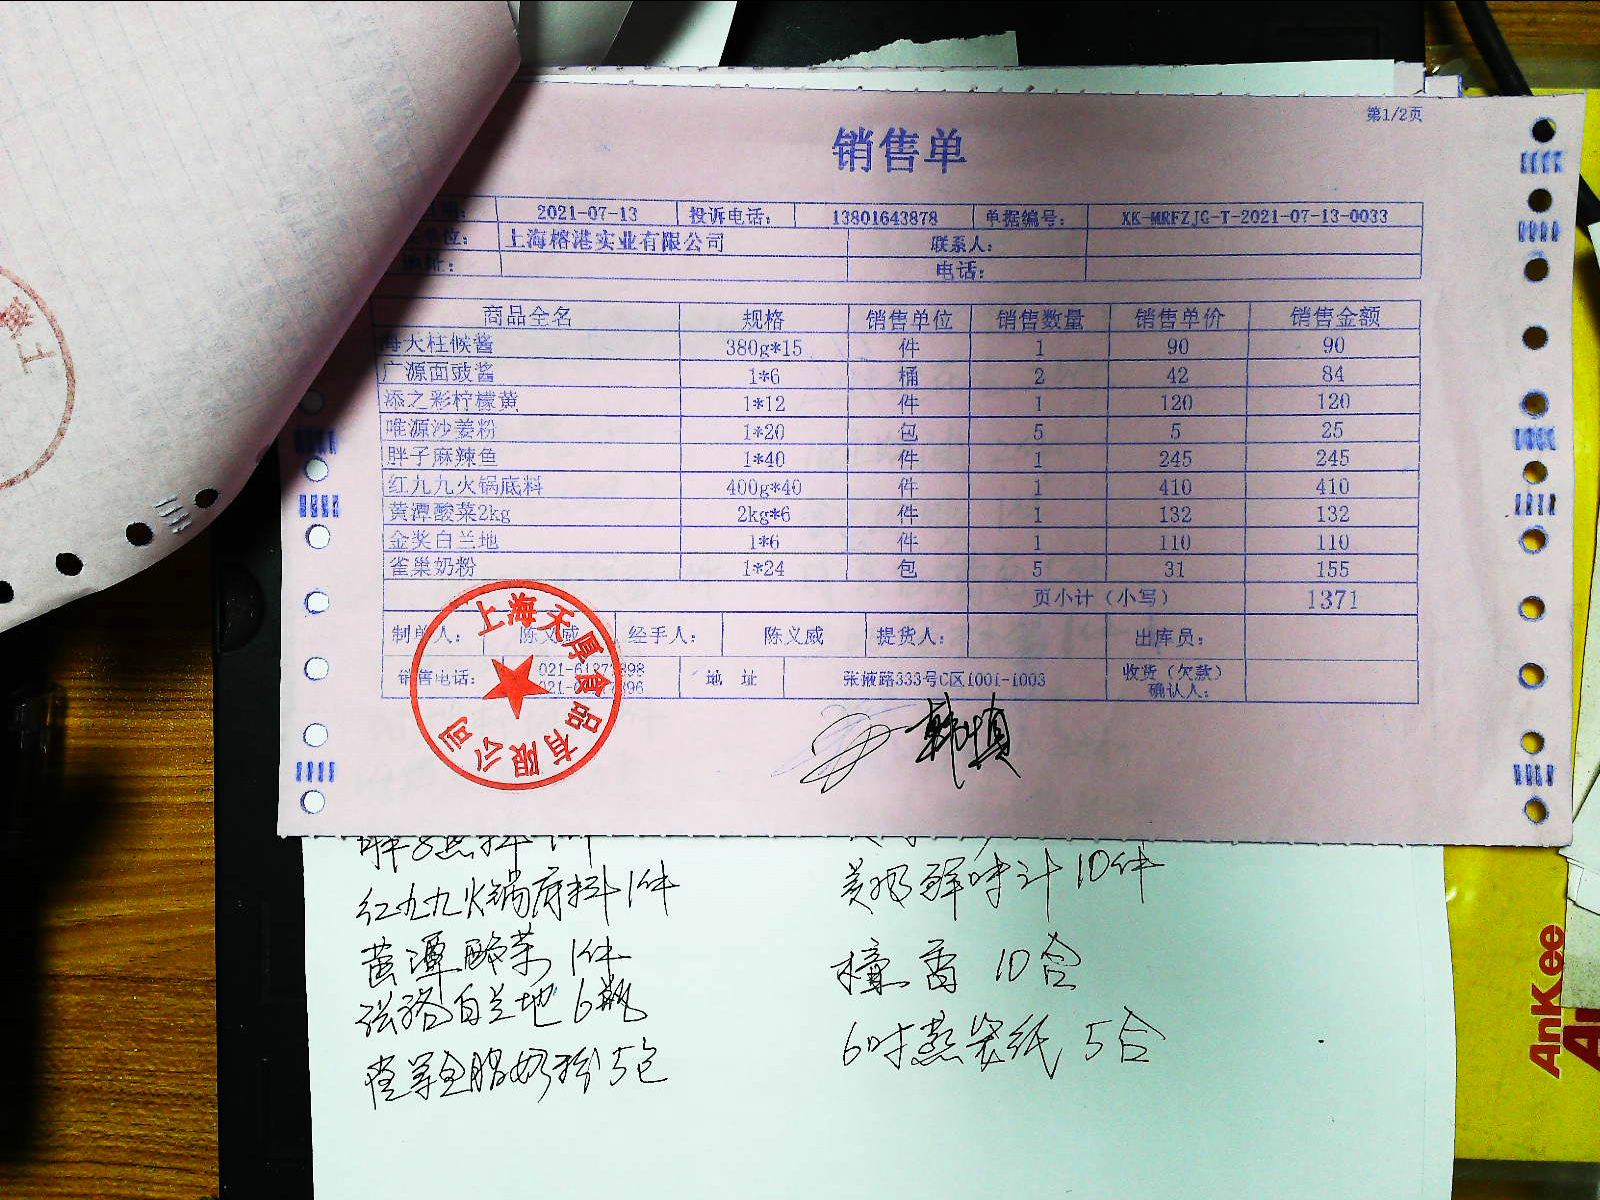 第1/2页
销售单
2021-07-13 投诉电话: 13801643878 单据编号: XK-MRFZJG-T-2021-07-13-0033
单位: 上海榕港实业有限公司 联系人:
地址: 电话:
商品全名 规格 销售单位 销售数量 销售单价 销售金额
海天柱候酱 380g*15 件 1 90 90
广源面豉酱 1*6 桶 2 42 84
添之彩柠檬黄 1*12 件 1 120 120
唯源沙姜粉 1*20 包 5 5 25
胖子麻辣鱼 1*40 件 1 245 245
红九九火锅底料 400g*40 件 1 410 410
黄潭酸菜2kg 2kg*6 件 1 132 132
金奖白兰地 1*6 件 1 110 110
雀巢奶粉 1*24 包 5 31 155
页小计（小写） 1371
制单人: 陈义威 经手人: 陈义威 提货人: 出库员:
销售电话: 地 址 张掖路333号C区1001-1003 收货（欠款）确认人:
上海天厚食品有限公司
韩慎
红九九火锅底料1件 美极鲜味汁10件
黄潭酸菜 1件
白兰地6瓶 10合
全脂奶粉5包 6吋蒸笼纸 5合
AnKee
上海